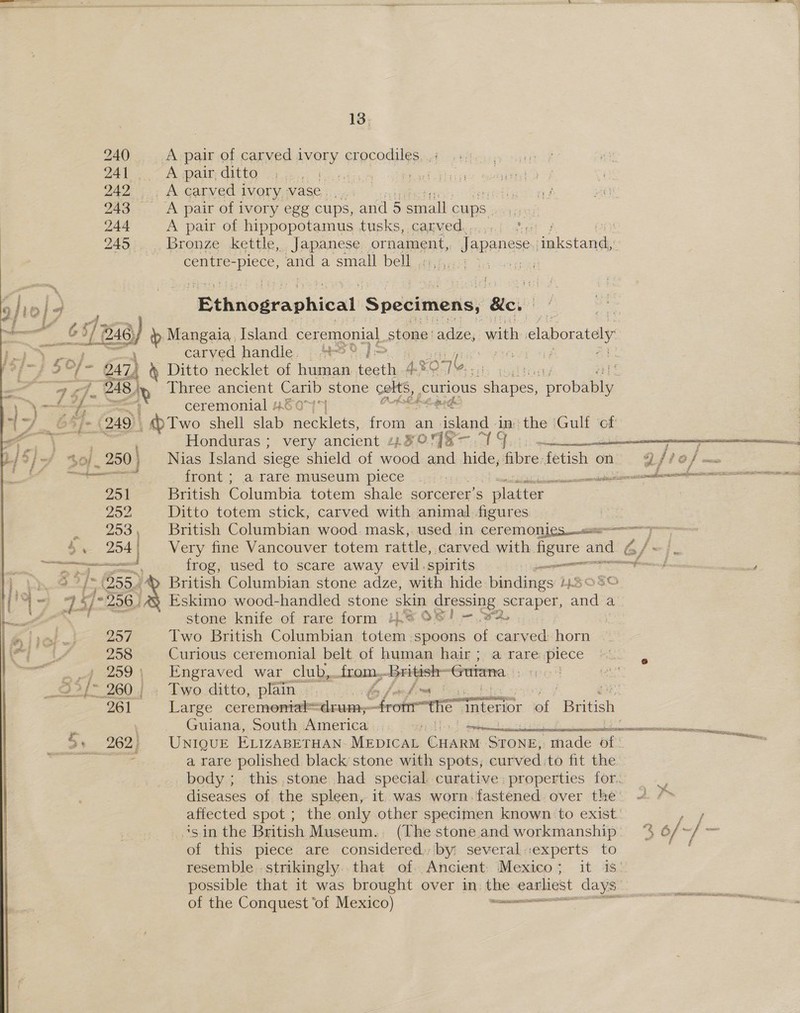 13
240 A pair of carved ivory crocodiles
241 A pair, ditto
242 A carved ivory vase
243 A pair of ivory egg cups, and 5 small cups
244 A pair of hippopotamus tusks, carved
245 Bronze kettle, Japanese ornament, Japanese inkstand,
centre-piece, and a small bell
Ethnographical Specimens, &c.
246 Mangaia Island ceremonial stone adze, with elaborately
carved handle
247 Ditto necklet of human teeth
248 Three ancient Carib stone celts, curious shapes, probably
ceremonial
249 Two shell slab necklets, from an island in the Gulf of
Honduras; very ancient
250 Nias Island siege shield of wood and hide, fibre fetish on
front; a rare museum piece
251 British Columbia totem shale sorcerer's platter
252 Ditto totem stick, carved with animal figures
253 British Columbian wood mask, used in ceremonies
254 Very fine Vancouver totem rattle, carved with figure and
frog, used to scare away evil spirits
255 British Columbian stone adze, with hide bindings
256 Eskimo wood-handled stone skin dressing scraper, and a
stone knife of rare form
257 Two British Columbian totem spoons of carved horn
258 Curious ceremonial belt of human hair; a rare piece
259 Engraved war club, from British Guiana
260 Two ditto, plain
261 Large ceremonial drum, from the interior of British
Guiana, South America
262 UNIQUE ELIZABETHAN MEDICAL CHARM STONE, made of
a rare polished black stone with spots, curved to fit the
body; this stone had special curative properties for
diseases of the spleen, it was worn fastened over the
affected spot; the only other specimen known to exist
is in the British Museum. (The stone and workmanship
of this piece are considered by several experts to
resemble strikingly that of Ancient Mexico; it is
possible that it was brought over in the earliest days
of the Conquest of Mexico)